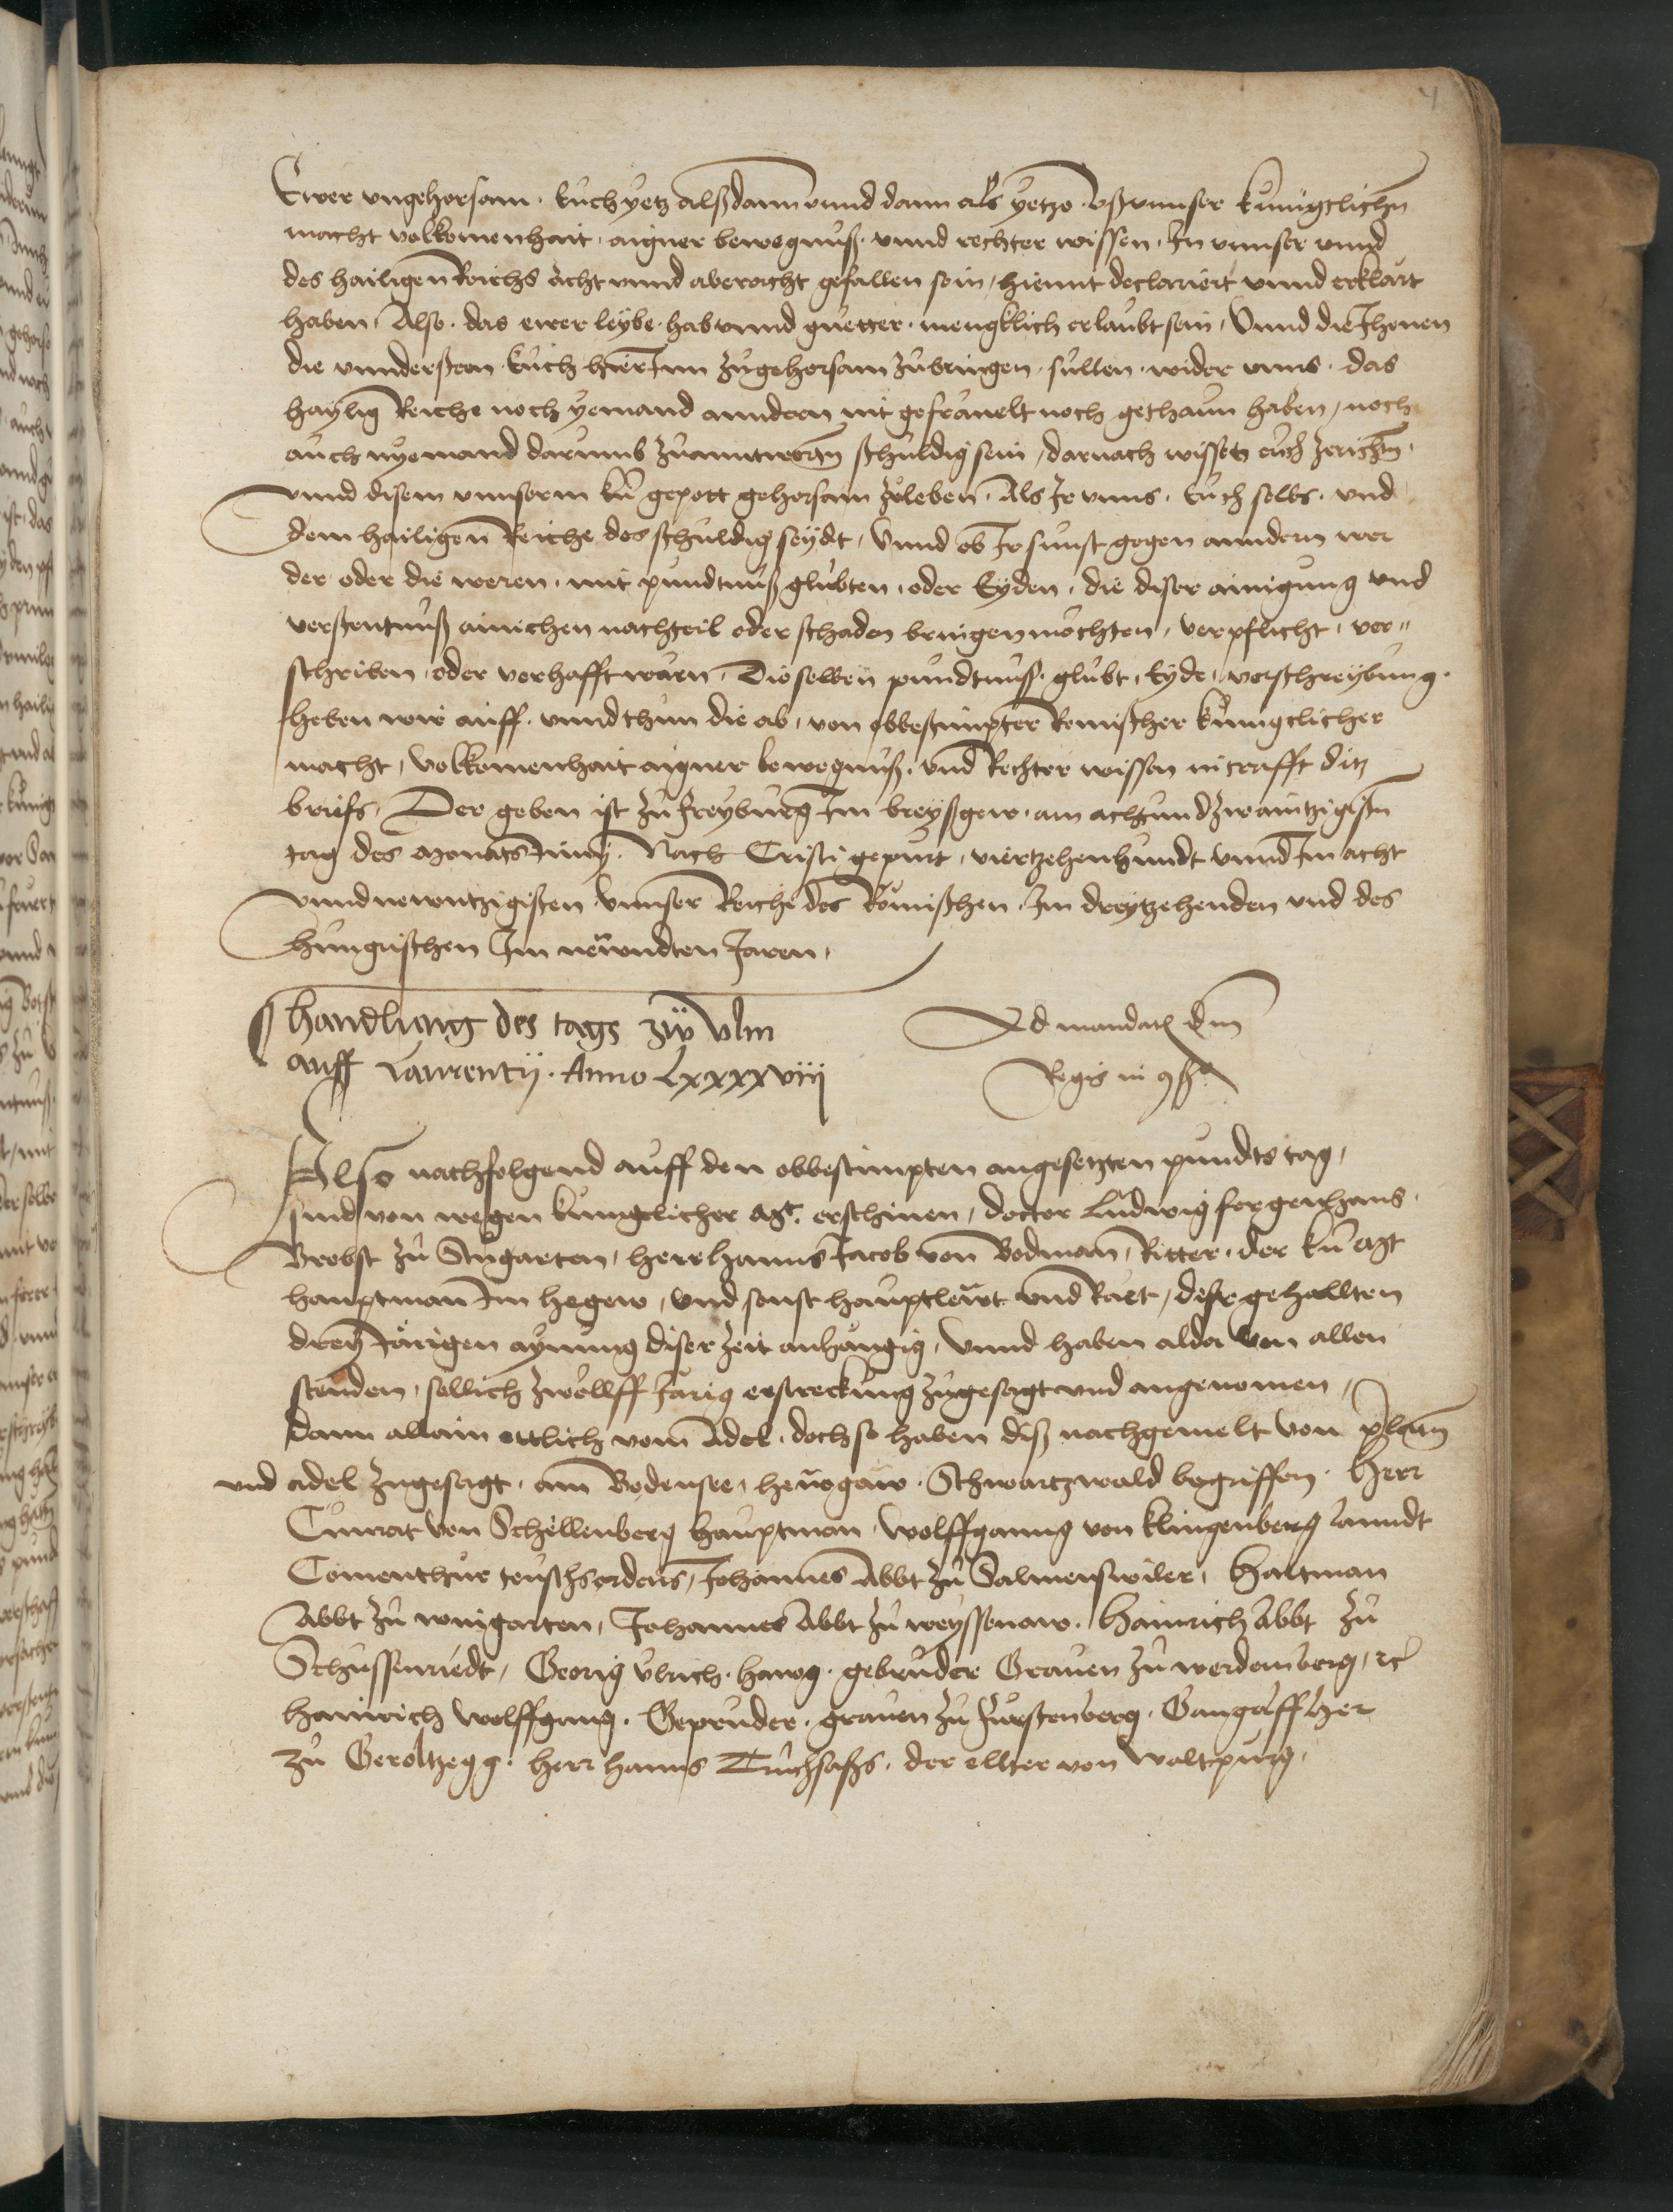 4
Ewer vngehorsam · Euch yetz alßdann vnnd dann als yetzo · vß vnnser kunigclichn̄
macht volkomenhait · aigner bewegnuß · vnnd rechter wissen · Jn vnnser vnnd
des hailigen Reichs acht vnnd aberacht gefallen sein / hiemit declariert vnnd erklart
haben / Also · das ewer leybe · hab vnnd guetter · mengklich erlaubt sein / Vnnd die Jhenen
die vnndersteen · Euch hierJnn zugehorsam zubringen · sullen · wider vnns · das
haylig Reiche noch yemand anndern nit gefrauelt noch gethann haben / noch
auch nyemand darumb zuanntwꝛtn̄ schuldig sein / darnach wisset euch zerichtn̄ ·
vnnd disem vnnserm ku͂ gepott gehorsam zuleben · Als Jr vnns · Euch selbs · vnd
dem hailigen Reiche des schuldig seydt / Vnnd ob Jr sunst gegen anndern wer
der oder die weren · mit pundtnuß glubten · oder Eyden · die diser ainigung vnd
verstentnuß ainichen nachteil oder schaden bringen mochten / verpflicht · ver„
schriben · oder verhafft warn · Dieselben pundtnuß · glubt · Eyde · verschreybung ·
heben wir auff · vnnd thun die ab · von obbestimpter Romischer kunigclicher
macht / Volkomenhait aigner bewegnuß · vnd Rechter wissen in crafft ditz
briefs / Der geben ist zu freyburg Jm breyßgew · am achtundzwaintzigistn̄
tag des Monats Junij · Nach Cristi gepurt / viertzehenhundt vnnd Jm acht
vnnd newntzigisten Vnnser Reiche des Romischen · Jm dreytzehenden vnd des
hungrischen Jm newndten Jaren ·
handlung des tags zu vlm
auff Laurentij · Anno Lxxxxviij
Ad mandatū dn̄i
Regis in ꝯsº
Also nachfolgend auff den obbestimpten angesetzten pundts tag /
sind von wegen kunigclicher Mt · erschinen / doctor Ludwig fergenhans ·
Brobst zu Stugarten / herr hanns Jacob von Bodman / Ritter · der ku͂ Mt
hauptman Jm hegew / vnd sonst hauptlewt vnd Raet / deßr gehallten
drey Jarigen aynung diser zeit anhangig / Vnnd haben alda von allen
stenden / sollich zwollff Jarig erstreckung zugesagt vnd angenomen /
dann allain ettlich vom Adel · doch so haben diß nachgemelt von p̄latn̄
vnd adel zugesagt · am Bodensee / hewgaw · Schwartzwald begriffen · Herr
Cunrat von Schellenberg hauptman / Wolffganng von Klingenberg lanndt
Comenthur teuschsordens / Johannes Abbt zu Salmenswiler / Hartman
Abbt zu wingarten / Johannes Abbt zu weyssenaw · Hainrich Abbt zu
Schussenriedt / Georig Vlrich · Hawg · gebruder Grauen zu werdemberg / ꝛc̄
Hainrich Wolffgang · Gepruder · grauen zu Furstenberg · Gangolff her
zu Geroltzegg · herr hanns Truchsaßs · der ellter von Waltpurg ·